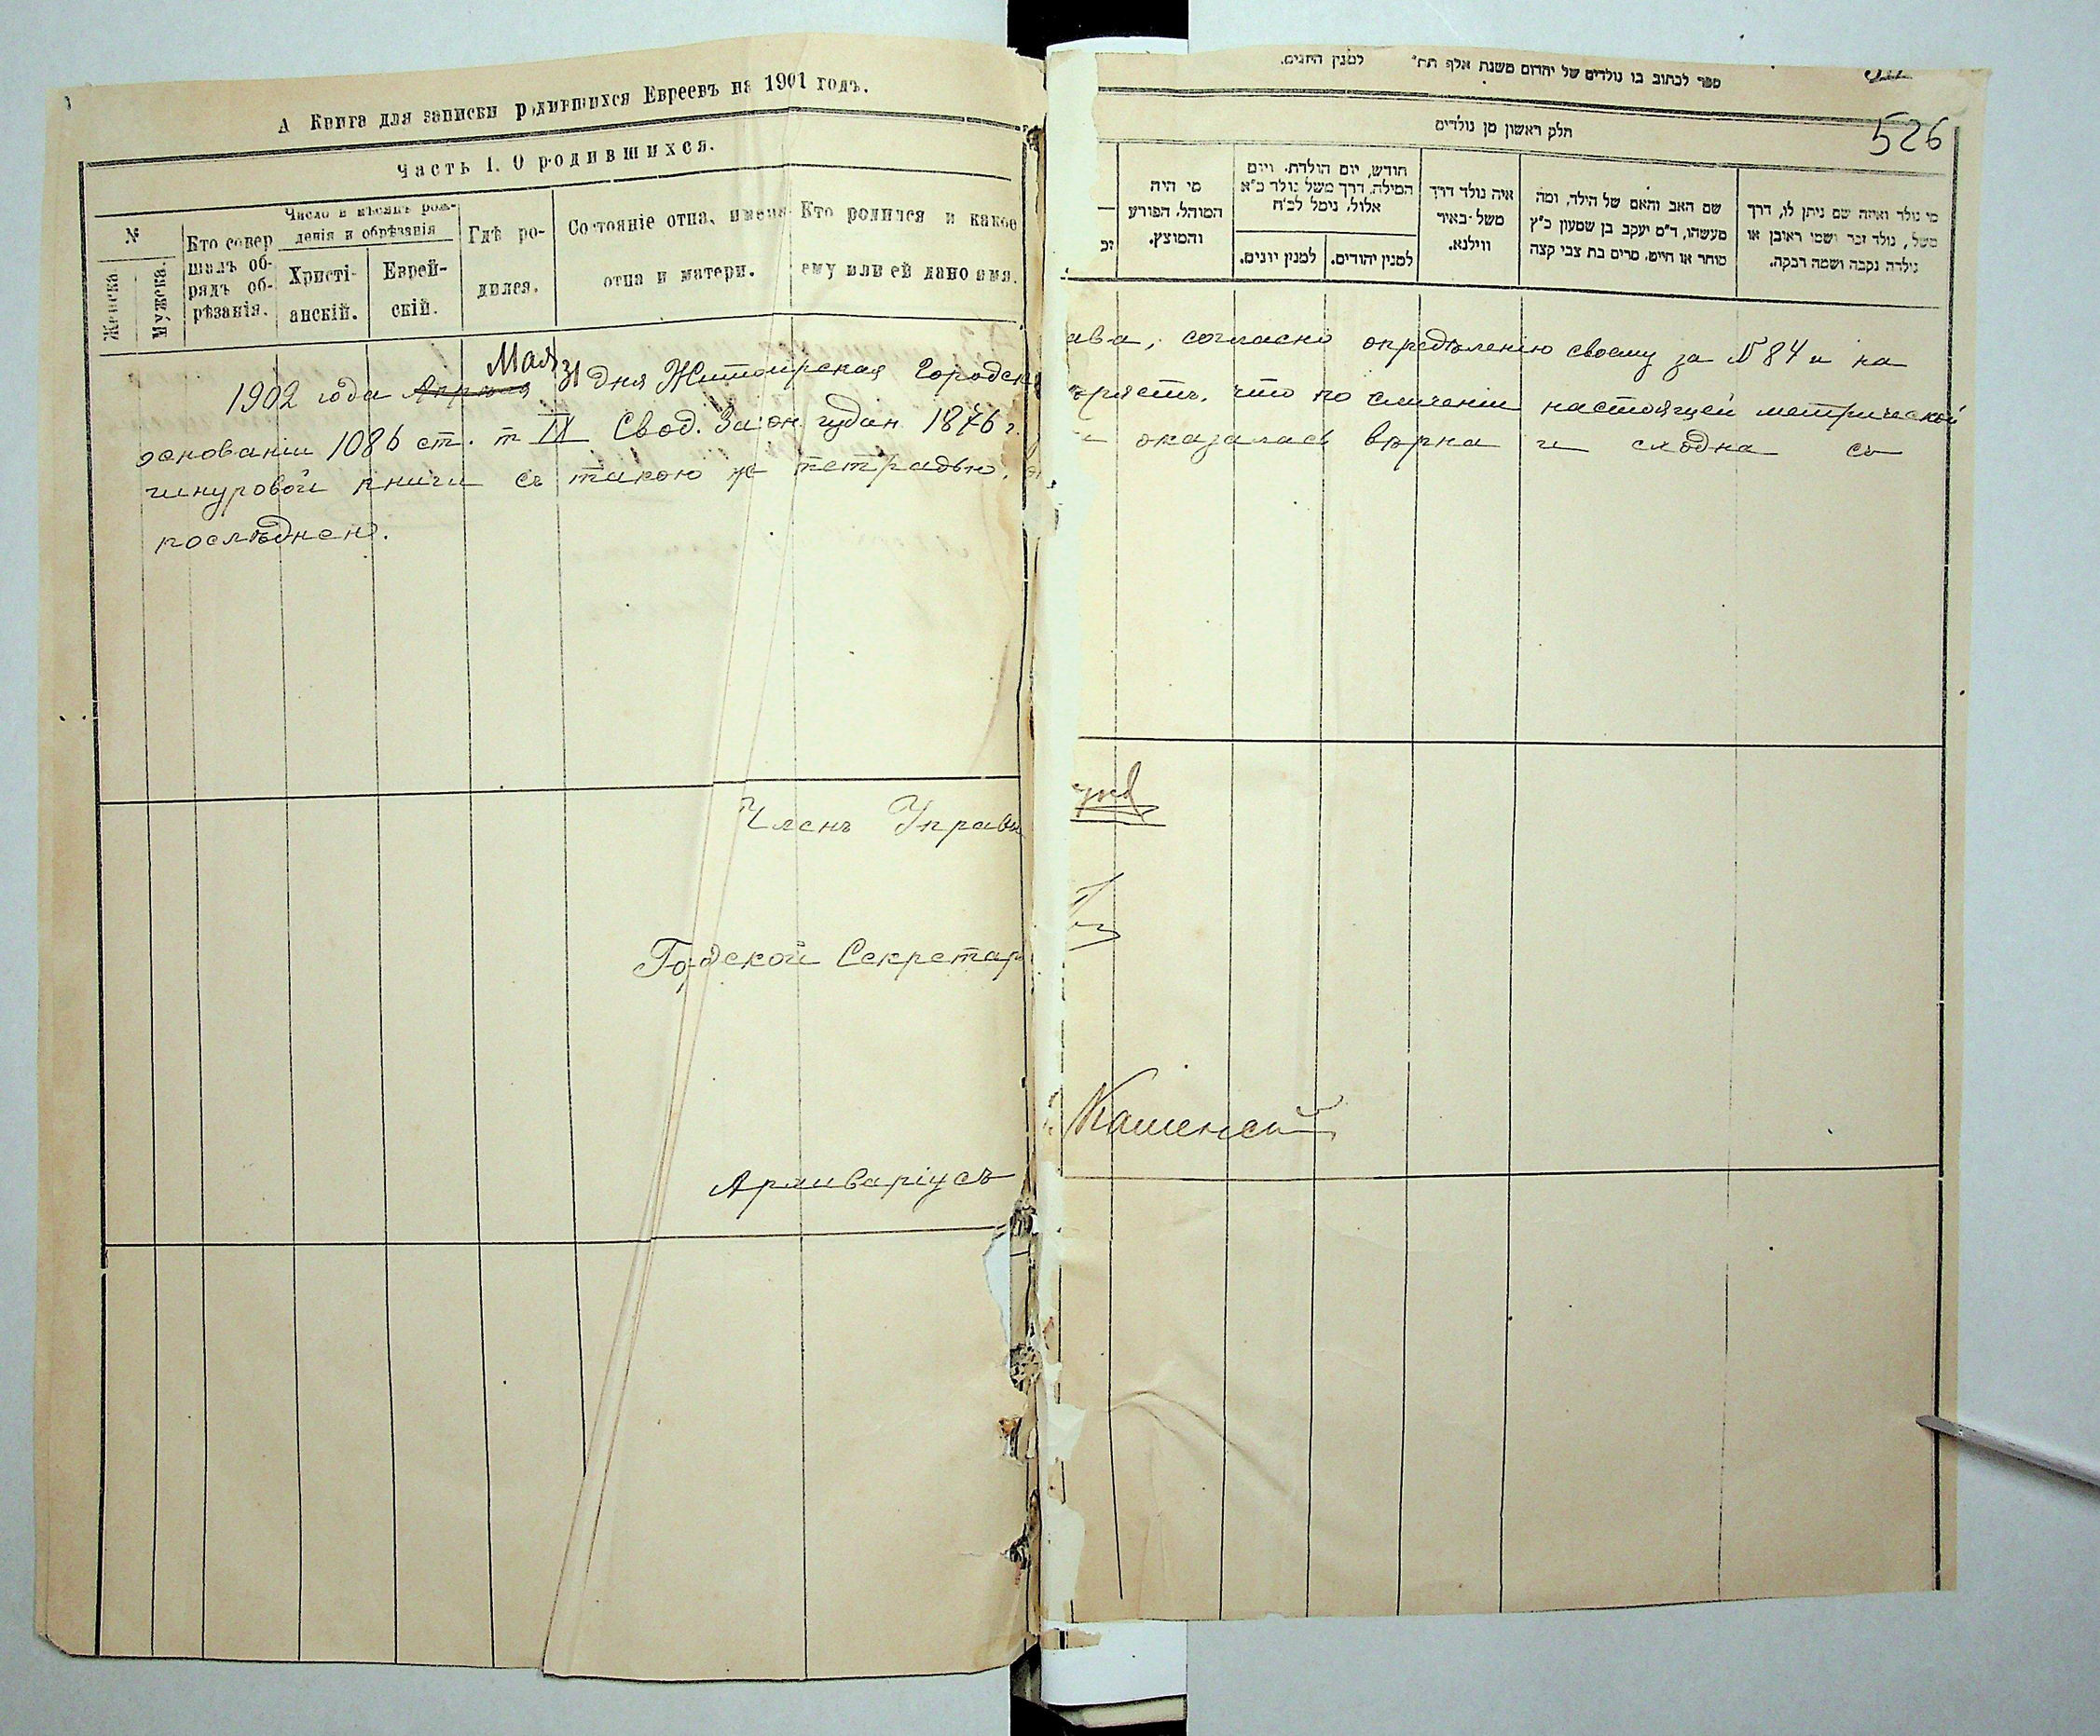 А Книга для записки родившихся Евреевъ на 1901 годъ.
Часть I. О родившихся.
№
Женска
Мужска.
Кто совер
шалъ об-
рядъ об-
рѣзанія.
Число и мѣсяцъ рож-
денія и обрѣзанія
Христі-
анскій.
Еврей-
скій.
Гдѣ ро-
дился.
Состояніе отца, имена
отца и матери.
Кто родился и какое
ему или ей дано имя.
Мая 31
1902 года Апрѣля дня Житомирская Городск
основаніи 1086 ст. т IX Свод. Закон. издан 1876 г.
шнуровой книги съ такою же тетрадью,
послѣдней.
Членъ Управы
Городской Секретар
Архиваріусъ
ספר לכתוב בו נולדים של יהדום משנת אלף תת״ למנין החגים.
526
חלק ראשון מן נולדים
מי היה
המוהל, הפורע
והמוצץ.
חודש, יום הולדת, ויום
המילה, דרך משל נולד כ״א
אלול, נימל לכ״ח
למנין יונים.
למנין יהודים.
איה נולד דרך
משל באיר
ווילנא.
שם האב והאם של הילד, ומה
מעשהו, ד״מ יעקב בן שמעון כ״ץ
סוחר או חייט, מרים בת צבי קצה
מי נולד ואיזה שם ניתן לו, דרך
משל, נולד זכר ושמו ראובן או
נולדה נקבה ושמה רבקה.
ава, согласно опредѣленію своему за № 84 и на
что по сличеніи настоящей метрической
оказалась вѣрна и сходна съ
Каменскій